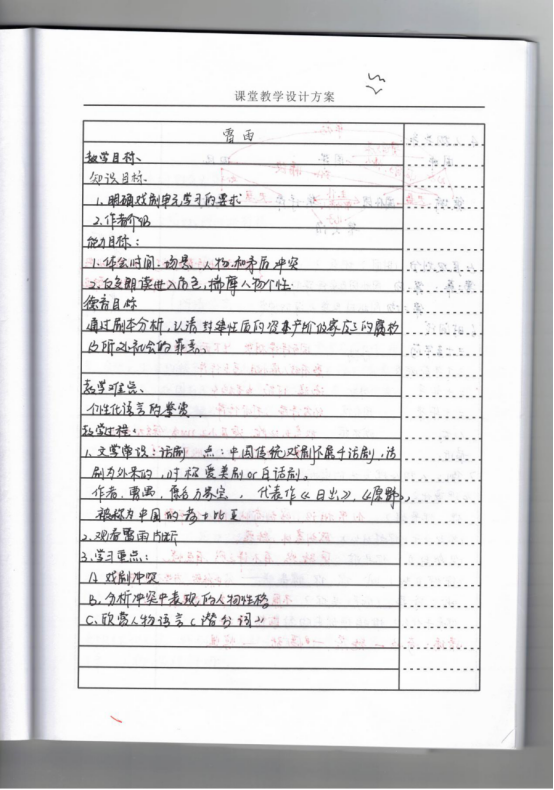 课堂教学设计方案
雷雨
教学目标、
知识目标、
1、明确戏剧单元学习的要求
2、作者介绍
能力目标：
1、体会时间、场景、人物、和矛盾冲突
2、分角朗读进入角色，揣摩人物个性
德育目标
通过剧本分析，认清封建性质的资产阶级家庭的腐朽
及所处社会的罪恶。
教学难点、
个性化语言的鉴赏
教学过程：
1、文学常识：话剧 点：中国传统戏剧不属于话剧，话
剧为外来的，时称爱美剧or白话剧。
作者，曹禺，原名万家宝，代表作《日出》，《原野》，
被称为中国的莎士比亚
2、观看雷雨片断
3、学习重点：
A 戏剧冲突
B、分析冲突中表现的人物性格
C、欣赏人物语言（潜台词）